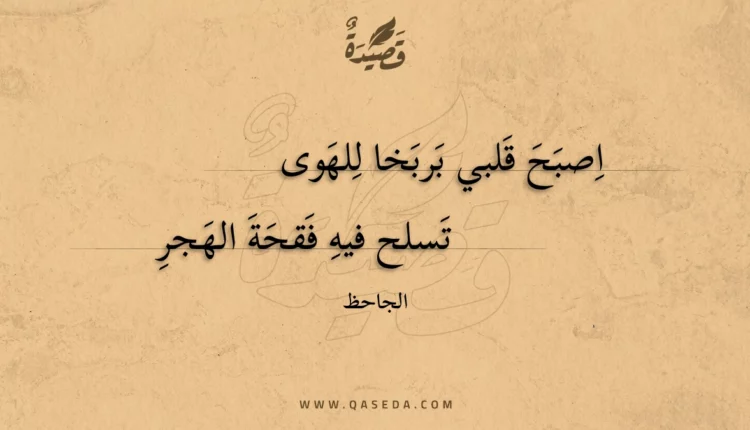 قَصِيْدَةٌ
اِصبَحَ قَلبي بَربَخا لِلهَوى
تَسلح فيهِ فَقحَةَ الهَجرِ
الجاحظ
WWW.QASEDA.COM